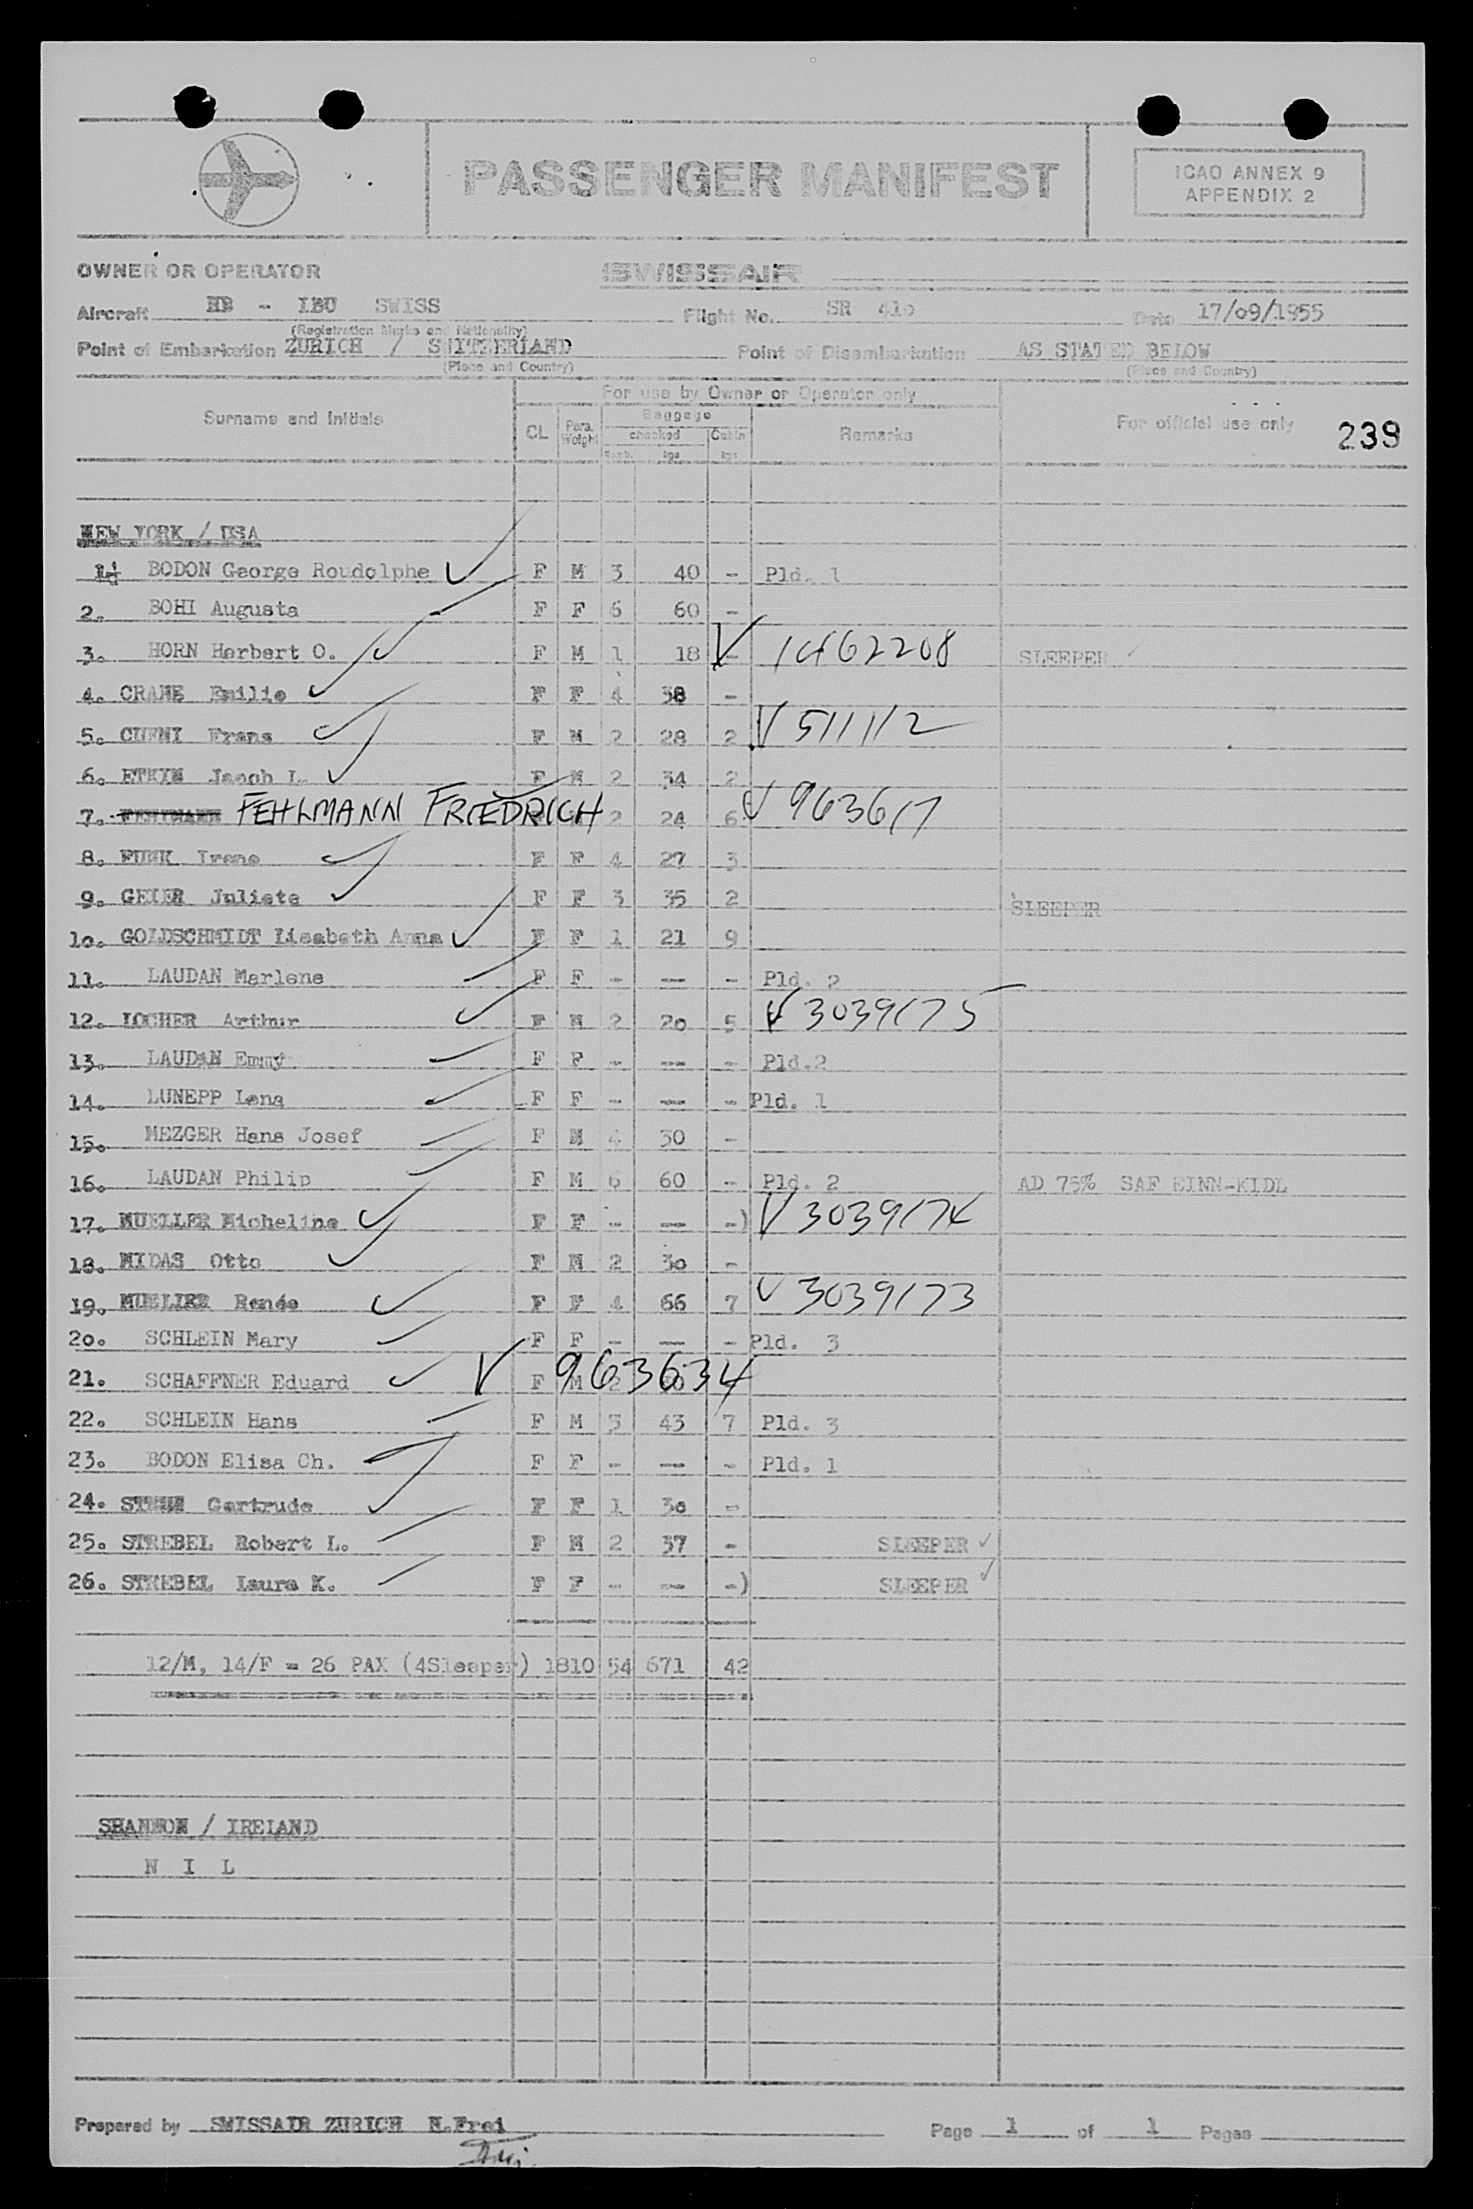 PASSENGER MANIFEST
ICAO ANNEX 9
APPENDIX 2
OWNER OR OPERATOR SWISSAIR
Aircraft HB - IBU SWISS Flight No. SR 410 Date 17/09/1955
(Registration Marks and Nationality)
Point of Embarkation ZURICH / SWITZERLAND Point of Disembarkation AS STATED BELOW
(Place and Country) (Place and Country)
For use by Owner or Operator only
Surname and Initials CL Pass. Weight Baggage checked Cabin Remarks For official use only 239
kgs kgs
NEW YORK / USA
1. BODON George Roudolphe F M 3 40 - Pld. 1
2. BOHI Augusta F F 6 60 -
3. HORN Herbert O. F M 1 18 - V 1462208 SLEEPER
4. CRANE Emilie F F 4 38 -
5. CUENI Frans F M 2 28 2 V 511112
6. ETKIN Jacob L. F M 2 34 2
7. FEHLMANN FRIEDRICH 2 24 6 V 963617
8. FUNK Irene F F 4 27 3
9. GEIER Juliete F F 3 35 2 SLEEPER
10. GOLDSCHMIDT Lisabeth Anna F F 1 21 9
11. LAUDAN Marlene F F - --- - Pld. 2
12. LOCHER Arthur F M 2 20 5 V 3039175
13. LAUDAN Emmy F F - --- - Pld.2
14. LUNEPP Lena F F - --- - Pld. 1
15. MEZGER Hans Josef F M 4 30 -
16. LAUDAN Philip F M 6 60 - Pld. 2 AD 75% SAF EINN-KIDL
17. MUELLER Micheline F F - --- -) V 3039174
18. MIDAS Otto F M 2 30 -
19. MUELLER Renée F F 4 66 7 V 3039173
20. SCHLEIN Mary F F - --- - Pld. 3
21. SCHAFFNER Eduard V F M 2 963634
22. SCHLEIN Hans F M 3 43 7 Pld. 3
23. BODON Elisa Ch. F F - --- - Pld. 1
24. Gertrude F F 1 30 -
25. STREBEL Robert L. F M 2 37 - SLEEPER
26. STREBEL Laura K. F F - --- -) SLEEPER
12/M, 14/F = 26 PAX (4Sleeper) 1810 54 671 42
SHANNON / IRELAND
N I L
Prepared by SWISSAIR ZURICH H.Frei Page 1 of 1 Pages